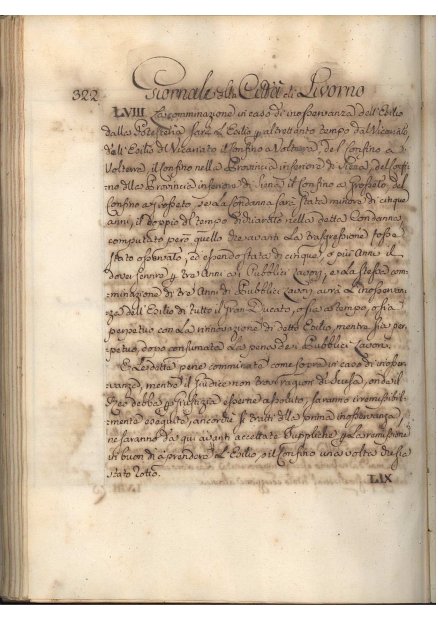 322 Giornale della Città di Livorno
LVIII La comminazione in caso di inosservanza dell'Esilio
dalla Potesteria sarà l'Esilio p altrettanto tempo dal Vicariato,
dell'Esilio del Vicariato il Confino a Volterra, del Confino a
Volterra, il Confino nella Provincia inferiore di Siena, del Confi-
no della Provincia inferiore di Siena, il Confino a Grosseto, del
Confino a Grosseto, se la Condanna sarà stata minore di cinque
anni, il doppio del tempo dichiarato nella detta Condanna,
computato però quello che avanti la trasgressione fosse
stato osservato, ed essendo stata di cinque, o più Anni il
dover servire p tre Anni ai Pubblici Lavori, e la stessa com-
minazione di tre Anni di Pubblici Lavori avrà l'inosservan-
za dell'Esilio di tutto il Gran Ducato, o sia a tempo, o sia
perpetuo con la rinnovazione di detto Esilio, mentre sia per-
petuo, dopo consumata la pena dei Pubblici Lavori.
E le dette pene comminate come sopra in caso di inosser-
vanza, mentre il Giudice non trovi ragion di scusa, onde il
Reo debba p giustizia esserne assoluto, saranno irremissibil-
mente eseguite, ancorchè si tratti della prima inosservanza,
ne saranno da qui avanti accettate Suppliche p la remissione
in buon dì a prendere l'Esilio, o il Confino una volta che sia
stato rotto.
LIX